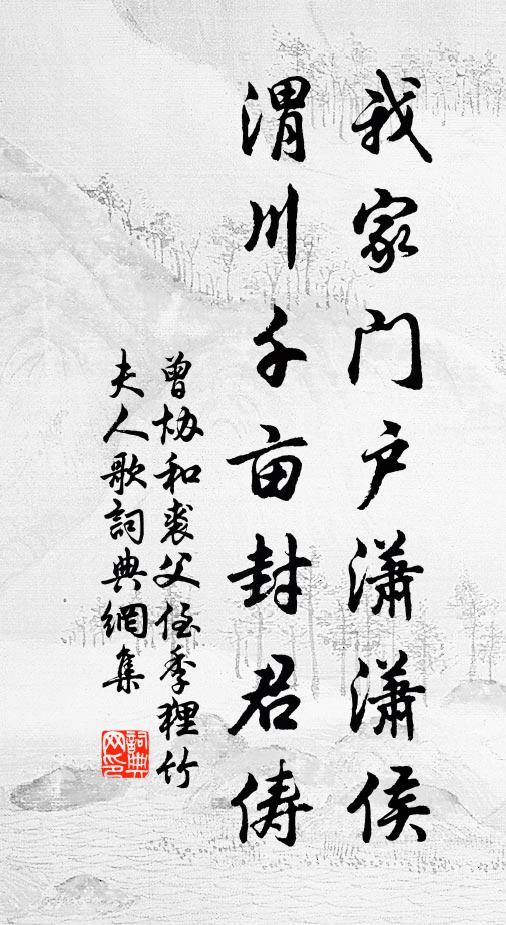 我家门户潇潇侯
渭川千亩封君俦
曾协和裘父侄季狸竹
夫人歌詞典網集
詞典
网印